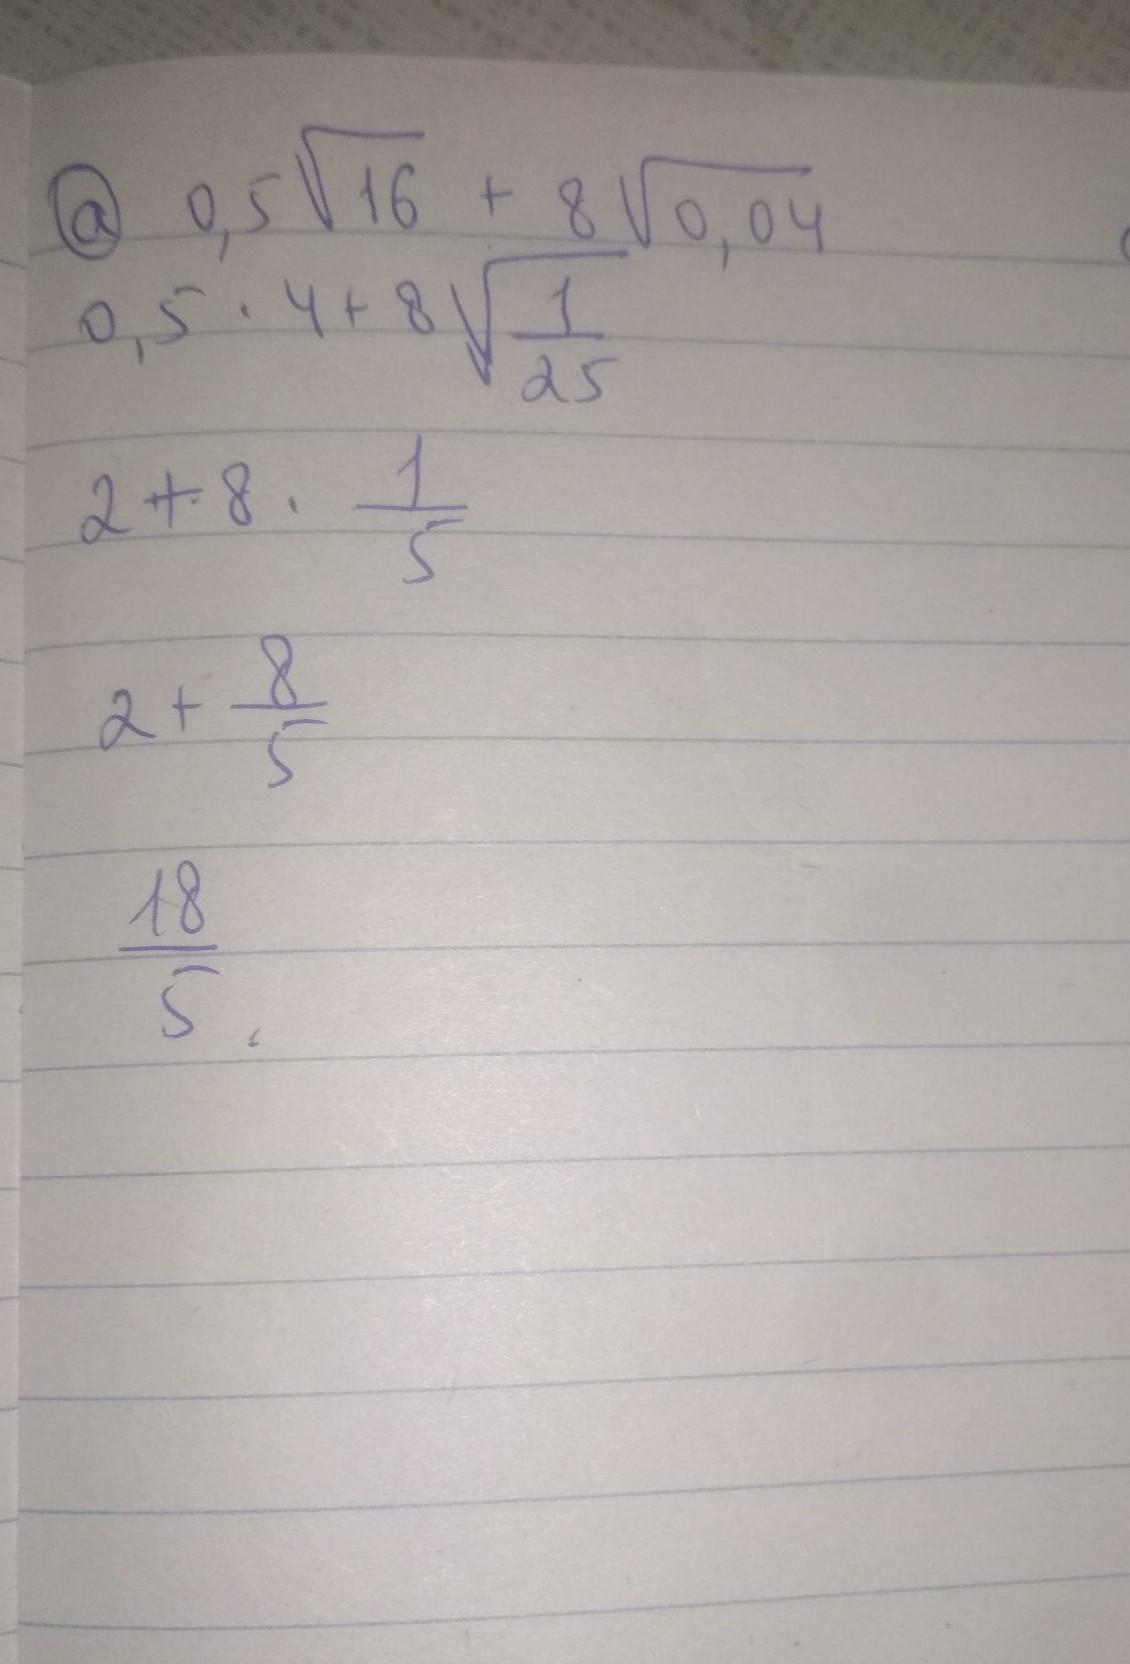 a 0,5√16 + 8√0,04
0,5 · 4 + 8√1/25
2 + 8 · 1/5
2 + 8/5
18/5.